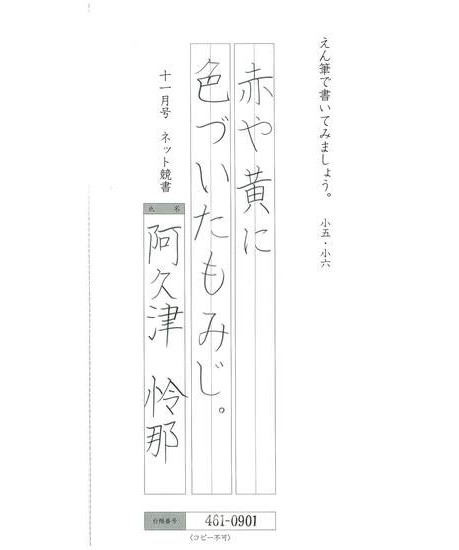 えん筆で書いてみましょう。 小五・小六
赤や黄に
色づいたもみじ。
十一月号 ネット競書
氏名
阿久津 怜那
台帳番号 461-0901
(コピー不可)